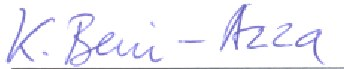 K. Beni-Azza